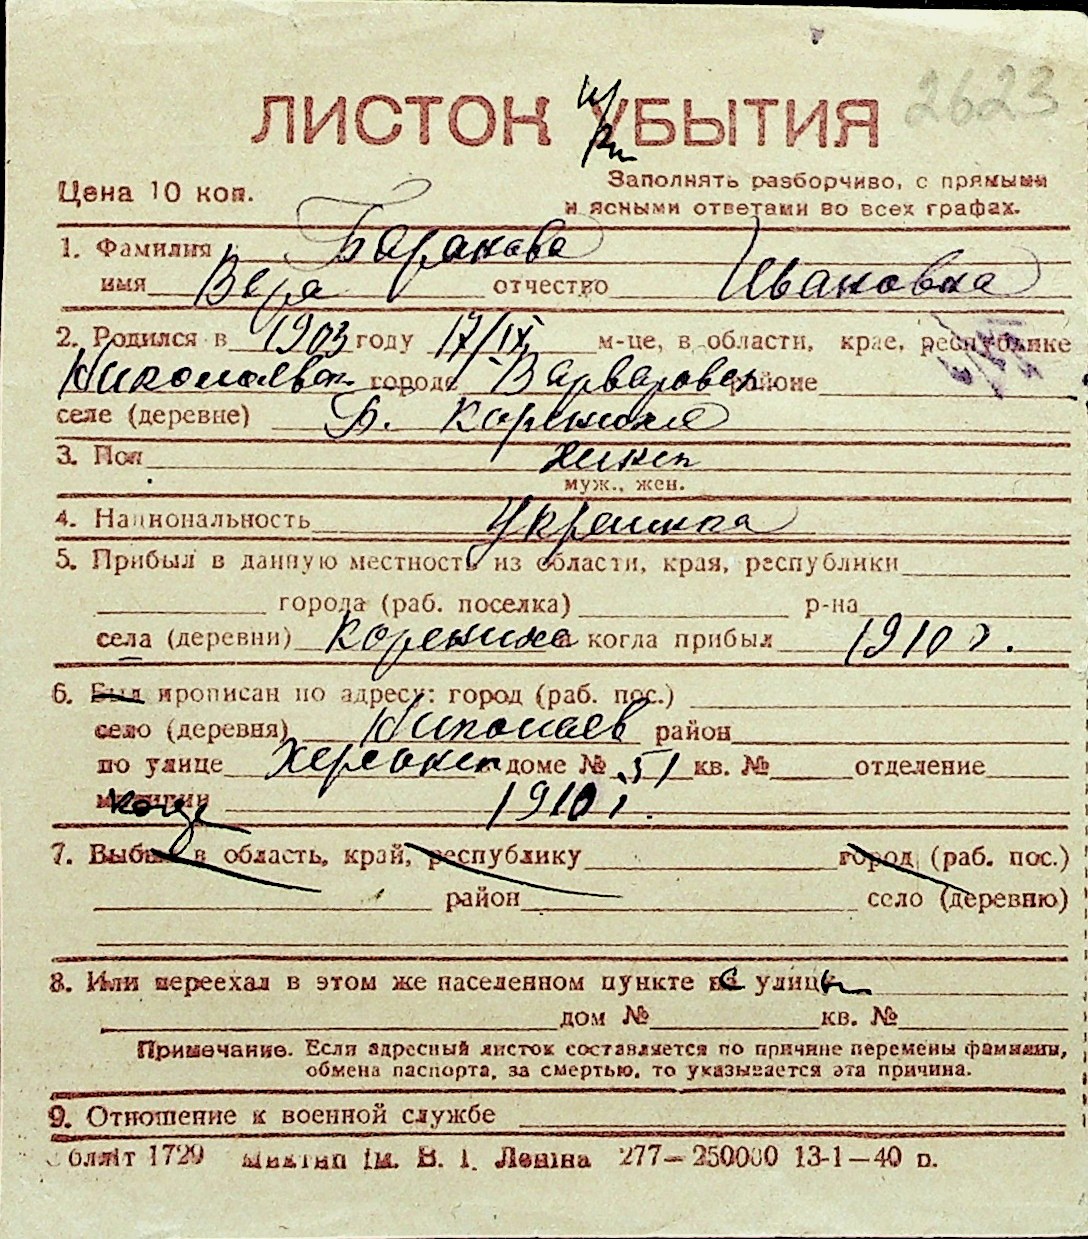 2623
ЛИСТОК УБЫТИЯ
Цена 10 коп.
Заполнять разборчиво, с прямыми
и ясными ответами во всех графах.
1. Фамилия Баранова
имя Вера отчество Ивановна
2. Родился в 1903 году 17/IX м-це, в области, крае, республике
Николаевск городе Варваровск районе
селе (деревне) Б. Корениха
3. Пол женск
муж., жен.
4. Национальность Украинка
5. Прибыл в данную местность из области, края, республики
города (раб. поселка) р-на
села (деревни) Корениха когда прибыл 1910 г.
6. Был прописан по адресу: город (раб. пос.)
село (деревня) Николаев район
по улице Херсонск доме № 51 кв. № отделение
милиции когда 1910 г.
7. Выбыл в область, край, республику город (раб. пос.)
район село (деревню)
8. Или переехал в этом же населенном пункте с улицы
дом № кв. №
Примечание. Если адресный листок составляется по причине перемены фамилии,
обмена паспорта, за смертью, то указывается эта причина.
9. Отношение к военной службе
Обліт 1729 Миктип ім. В. І. Леніна 277—250000 13-1—40 р.